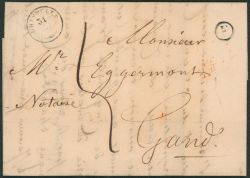 31
Monsieur
Mr Eggermont
Notaire
Gand.